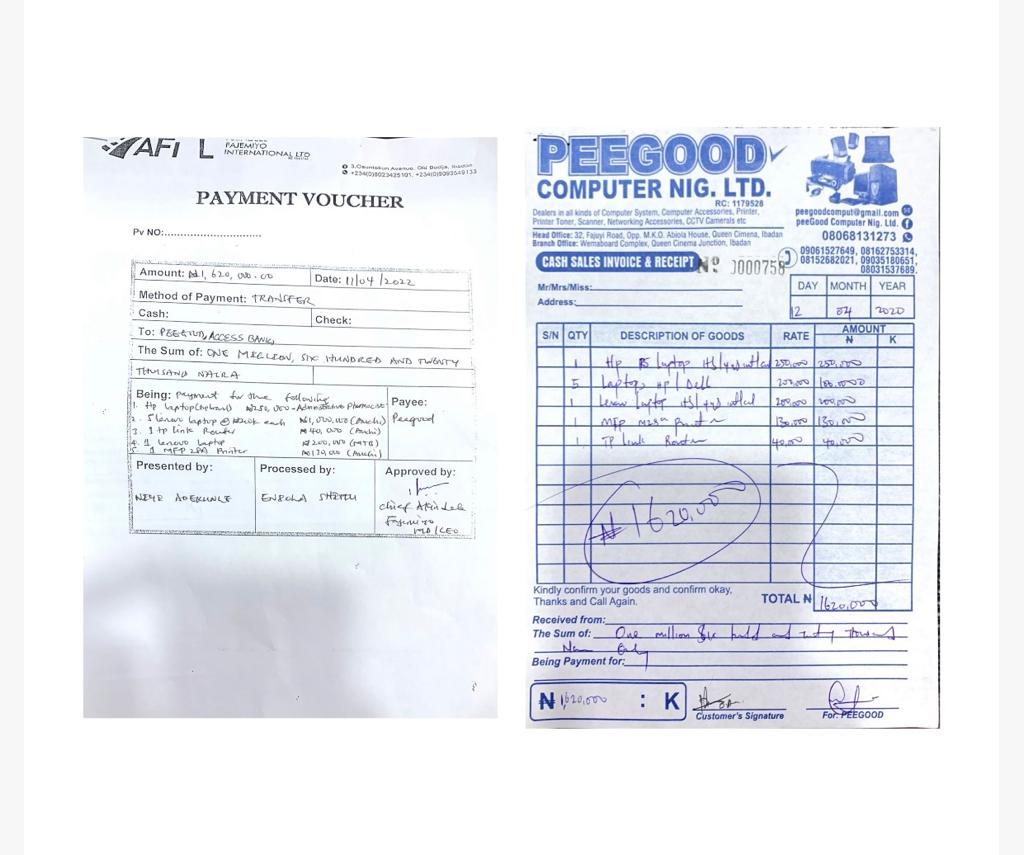 AFI L
FAJEMIYO
INTERNATIONAL LTD
3, Osuntokun Avenue, Old Bodija, Ibadan
PAYMENT VOUCHER
Pv NO:
Amount: ₦1,620,000.00
Date: 11/04/2022
Method of Payment: TRANSFER
Cash:
Check:
To: PEEGOOD, ACCESS BANK
The Sum of: ONE MILLION, SIX HUNDRED AND TWENTY
THOUSAND NAIRA
Being: Payment for the following
Payee:
Peegood
1. Hp laptop ₦250,000 - Administrative Pharmacist
2. 5 lenovo laptop @ each ₦1,000,000 (Auchi)
3. 1 tp link Router ₦40,000 (Auchi)
4. 1 lenovo laptop ₦200,000
5. 1 MFP Printer ₦130,000 (Auchi)
Presented by:
Processed by:
Approved by:
ADEKUNLE
ENIOLA
chief
MD/CEO
PEEGOOD
COMPUTER NIG. LTD.
RC: 1179528
Dealers in all kinds of Computer System, Computer Accessories, Printer,
Printer Toner, Scanner, Networking Accessories, CCTV Camerals etc
Head Office: 32, Fajuyi Road, Opp. M.K.O. Abiola House, Queen Cimena, Ibadan
Branch Office: Wemaboard Complex, Queen Cinema Junction, Ibadan
peegoodcomput@gmail.com
peeGood Computer Nig. Ltd.
08068131273
09061527649, 08162753314,
08152682021, 09035180651,
08031537689.
CASH SALES INVOICE & RECEIPT
Nº 0000758
Mr/Mrs/Miss:
Address:
DAY MONTH YEAR
12 04 2020
S/N QTY DESCRIPTION OF GOODS RATE AMOUNT
₦ K
1 Hp laptop 250,000 250,000
5 Laptops HP / Dell
1 Lenovo laptop 200,000 200,000
1 MFP Printer 130,000 130,000
1 TP link Router 40,000 40,000
₦1620,000
Kindly confirm your goods and confirm okay,
Thanks and Call Again.
TOTAL ₦ 1620,000
Received from:
The Sum of: One million Six and thousand
Being Payment for:
₦ 1,620,000 : K
Customer's Signature
For: PEEGOOD